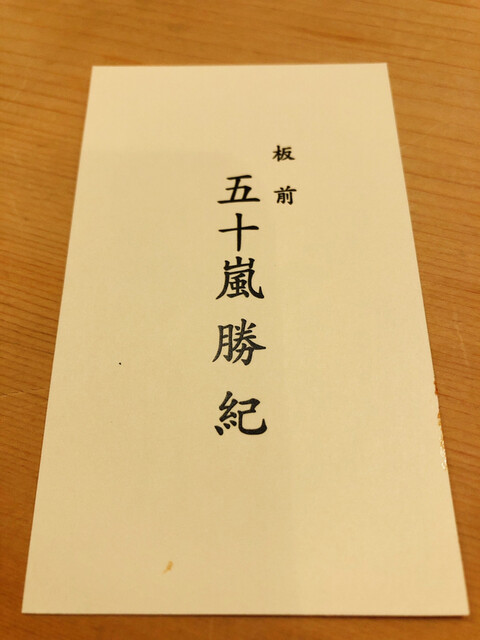 板前
五十嵐勝紀